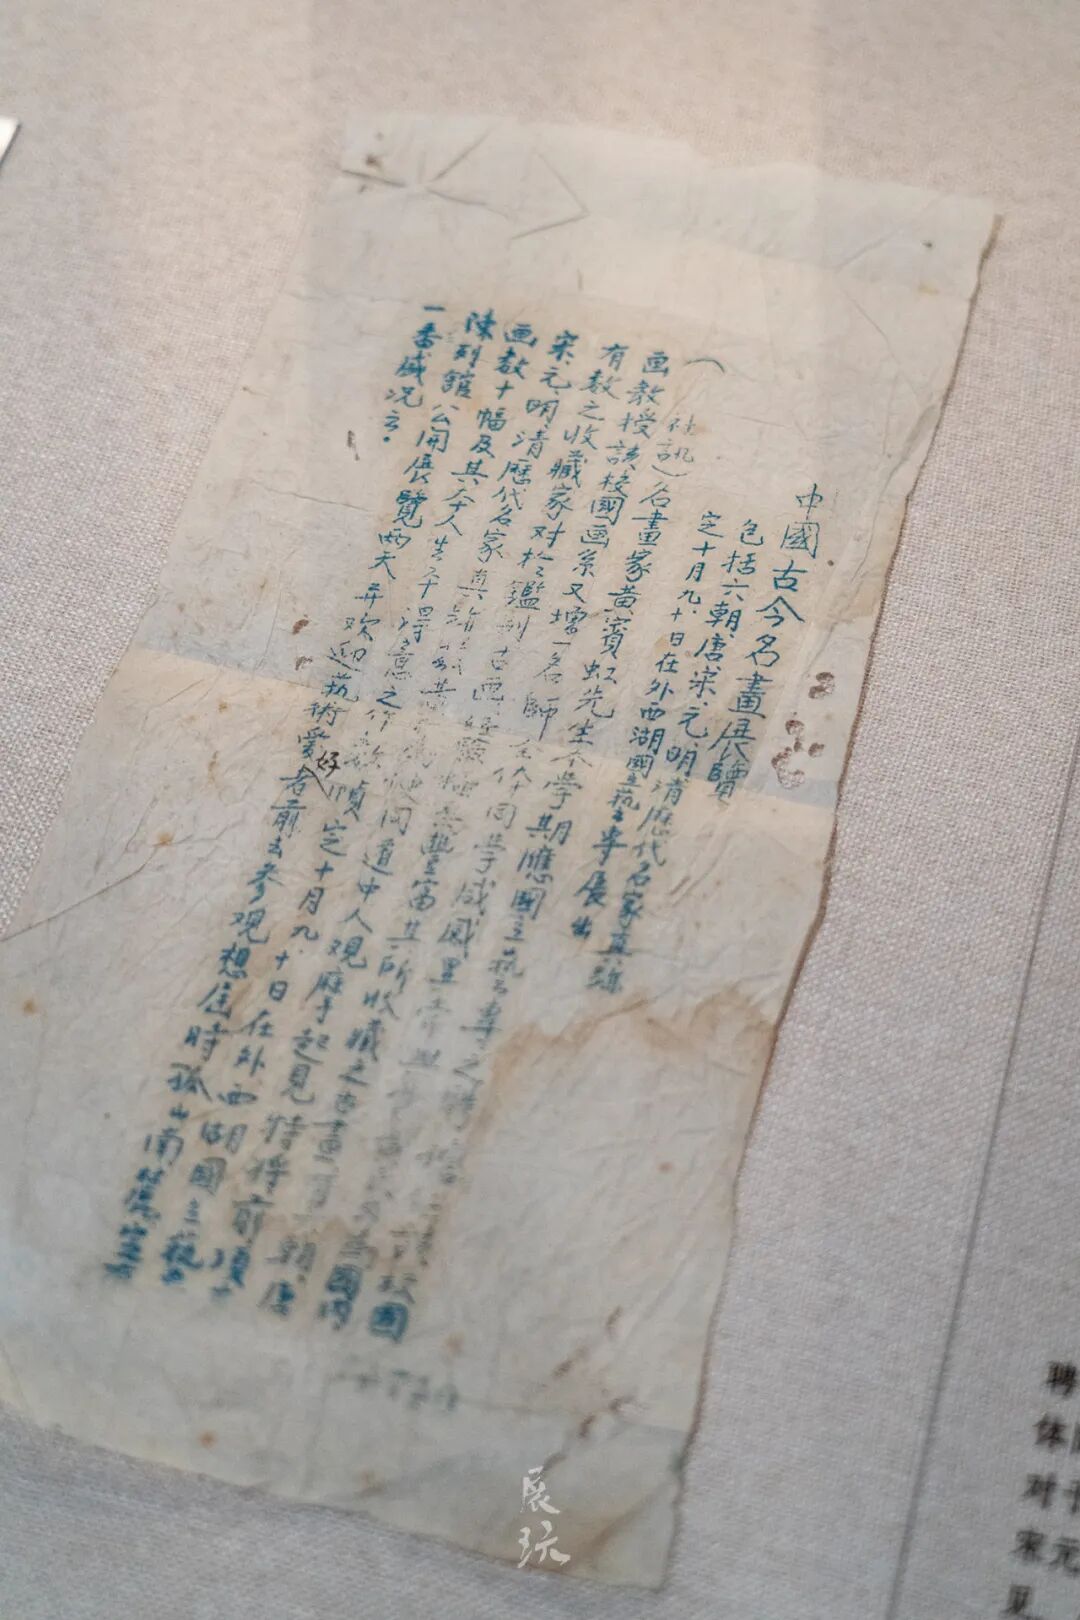 中國古今名畫展覽
包括六朝、唐、宋、元、明、清歷代名家真跡
定十月九、十日在外西湖國立藝專展出
（社訊）名畫家黃賓虹先生本學期應國立藝專之聘 該校國
画教授該校國画系又增一名師全体同学咸感異常興 為國內
有数之收藏家对於鑑別古画經驗極為豐富其所收藏之古畫有六朝、唐
宋、元、明、清歷代名家真跡 同道中人观摩起見特将前項古
画数十幅及其本人生平得意之作数幀定十月九、十日在外西湖國立藝專
陳列館公開展覽兩天并欢迎藝術愛好者前去参观想屆時孤山南麓定有
一番盛况云。
聘
体
对
宋元
见
展玩